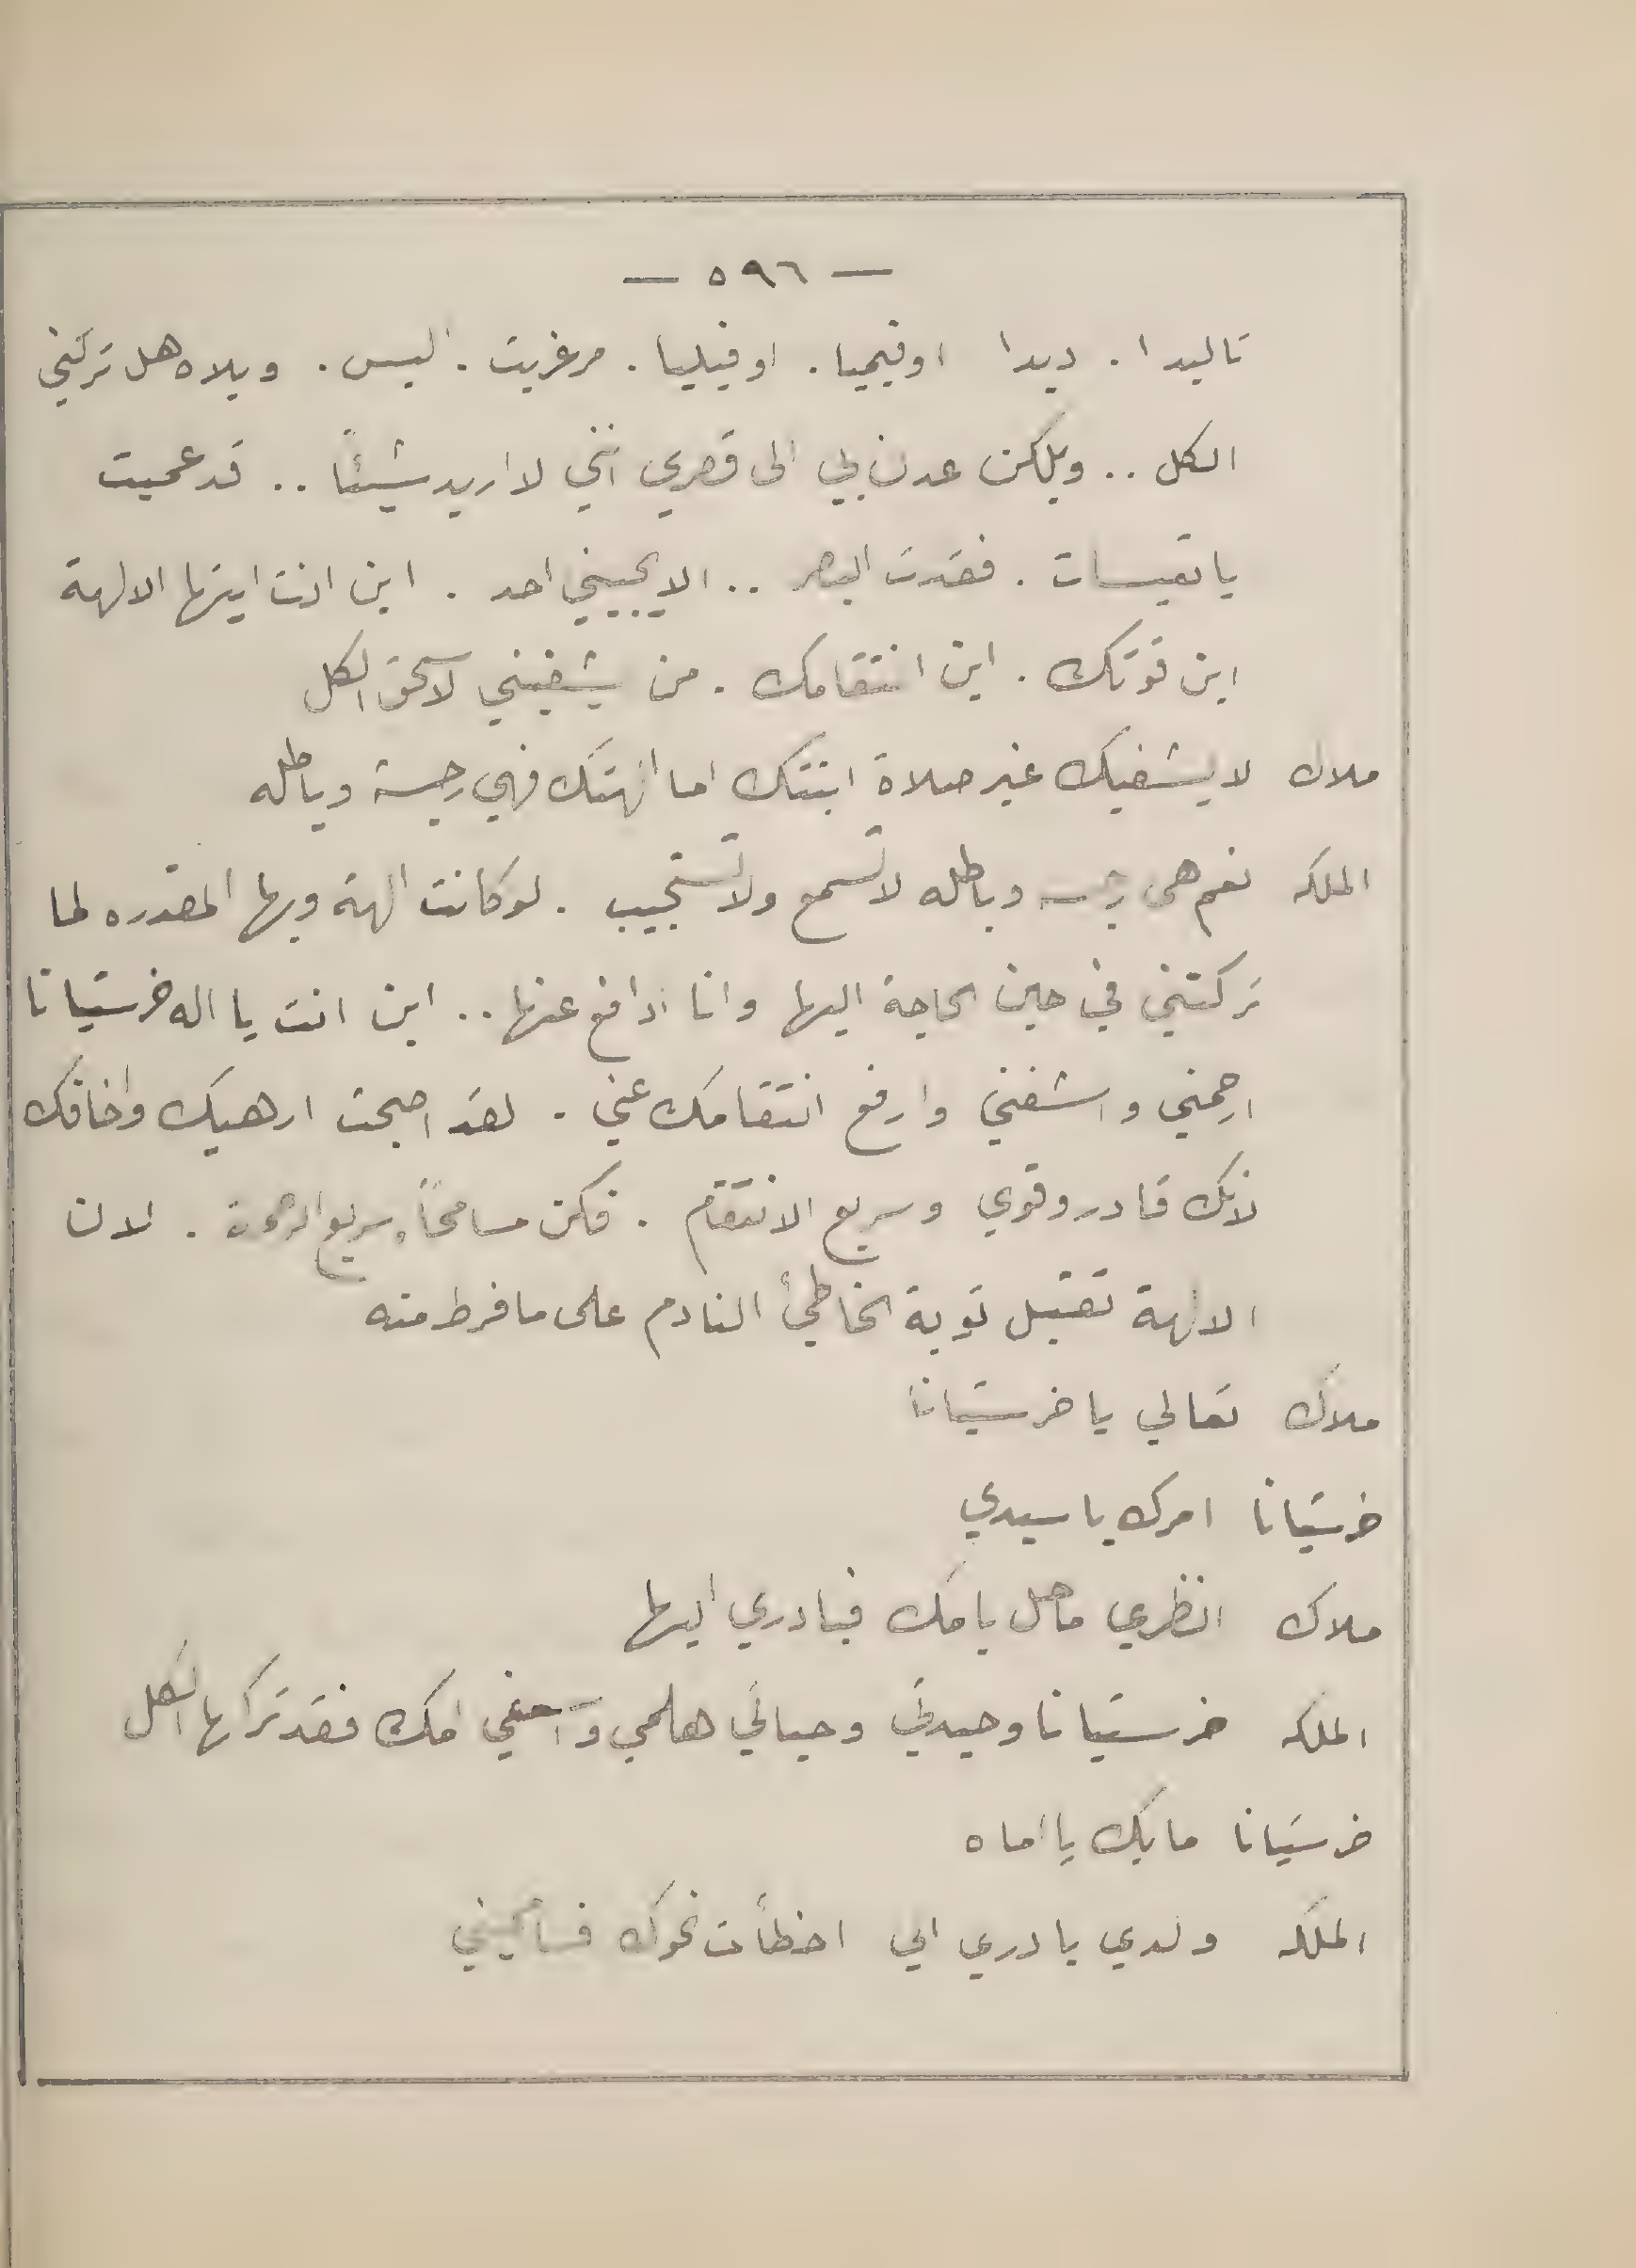 — ٥٩٦ —
تاليدا . ديدا اوفيميا . اوفيليا . مرغريت . اليس . ويلاه هل تركني
الكل .. ويلكن عدن بي الى قصري انني لا اريد شيئاً .. قد عميت
يا تعيسات . فقدت البصر .. الا يجيبني احد . اين انت ايتها الالهة
اين قوتك . اين انتقامك . من يشفيني لاسحق الكل
ملاك لا يشفيك غير صلاة ابنتك اما الهتك فهي رجسة وباطله
الملكه نعم هي رجسه وباطله لا تسمع ولا تستجيب . لو كانت الهة وبها المقدره لما
تركتني في حين الحاجة اليها وانا ادافع عنها .. اين انت يا اله خرستيانا
ارحمني واشفني وارفع انتقامك عني . لقد اصبحت ارهبك واخافك
لانك قادر وقوي وسريع الانتقام . فكن مسامحاً وسريع الرحمة . لان
الالهة تقبل توبة الخاطئ النادم على ما فرط منه
ملاك تعالي يا خرستيانا
خرستيانا امرك يا سيدي
ملاك انظري ما حل بامك فبادري اليها
الملكه خرستيانا وحيدتي وحياتي هلمي و امك فقد تركها الكل
خرستيانا ما بك يا اماه
الملكه ولدي بادري الي اخطأت نحوك فسامحيني